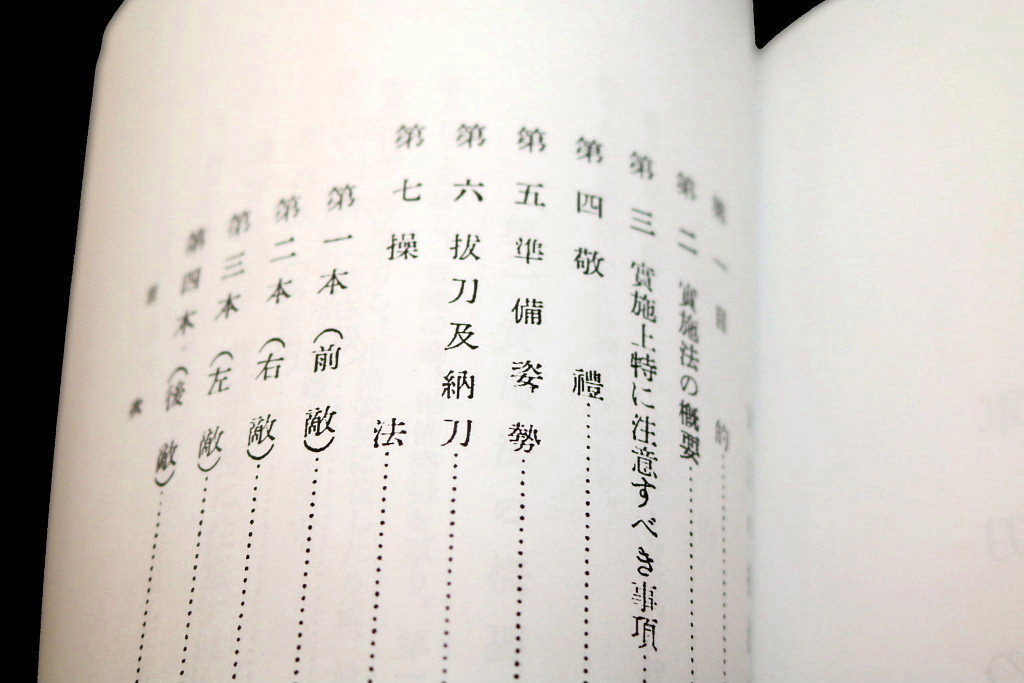 第一 目的
第二 實施法の概要
第三 實施上特に注意すべき事項
第四 敬禮
第五 準備姿勢
第六 拔刀及納刀
第七 操法
第一本（前敵）
第二本（右敵）
第三本（左敵）
第四本（後敵）
目次